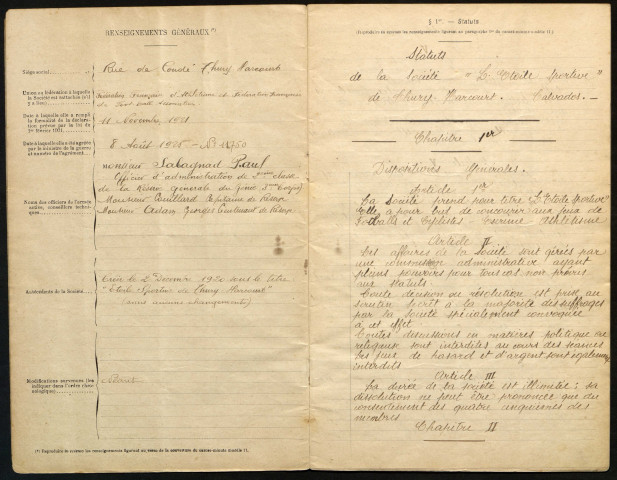 RENSEIGNEMENTS GÉNÉRAUX (*)
Siège social
Rue de Condé Thury Harcourt
Union ou fédération à laquelle
la Société est rattachée (s'il
y a lieu)
Date à laquelle elle a rempli
la formalité de la déclara-
tion prévue par la loi du
1er février 1901
11 Novembre 1921
Date à laquelle elle a été agréée
par le ministre de la guerre
et numéro de l'agrément
8 Août 1925 - N° 11750
Monsieur Sabagnad Paul
Officier d'administration de 2ème classe
de la Réserve générale du génie
Noms des officiers de l'armée
active, conseillers techni-
ques
Monsieur Couillard Capitaine de Réserve
Monsieur Adam Georges Lieutenant de Réserve
Antécédents de la Société
Créée le 2 Décembre 1920 sous le titre
"Etoile Sportive de Thury-Harcourt"
(sans aucuns changements)
Modifications survenues (les
indiquer dans l'ordre chro-
nologique)
Néant
§ 1er. — Statuts
Statuts
de la Société "L'Etoile Sportive"
de Thury Harcourt. Calvados. —
Chapitre 1er
Dispositions Générales.
Article 1er
La Société prend pour titre "L'Etoile Sportive"
Elle a pour but de concourir aux jeux de
Footballs et Cyclistes Escrime Athlétisme
Article II
Les affaires de la Société sont gérées par
une commission administrative ayant
pleins pouvoirs pour tous cas non prévus
aux statuts.
Toute décision ou résolution est prise au
scrutin secret à la majorité des suffrages
par la Société spécialement convoquée
à cet effet
Toutes discussions en matières politique ou
religieuse sont interdites au cours des séances
Les jeux de hasard et d'argent sont également
interdits
Article III
La durée de la société est illimitée ; sa
dissolution ne peut être prononcée que du
consentement des quatre cinquièmes des
membres
Chapitre II